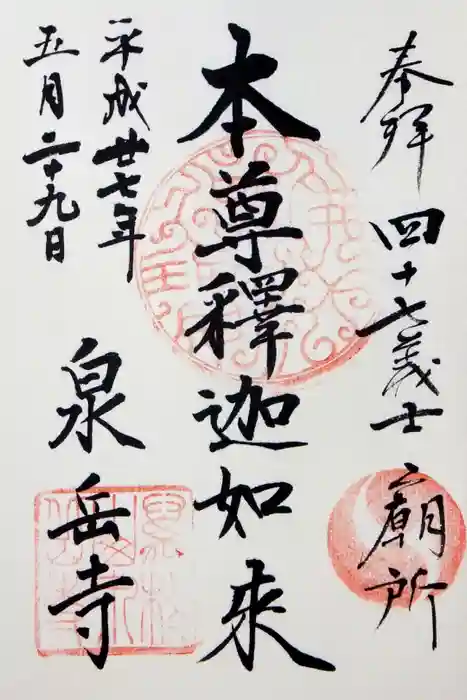 奉拜 四十七義士廟所
本尊釋迦如来
平成廿七年
五月二十九日
泉岳寺